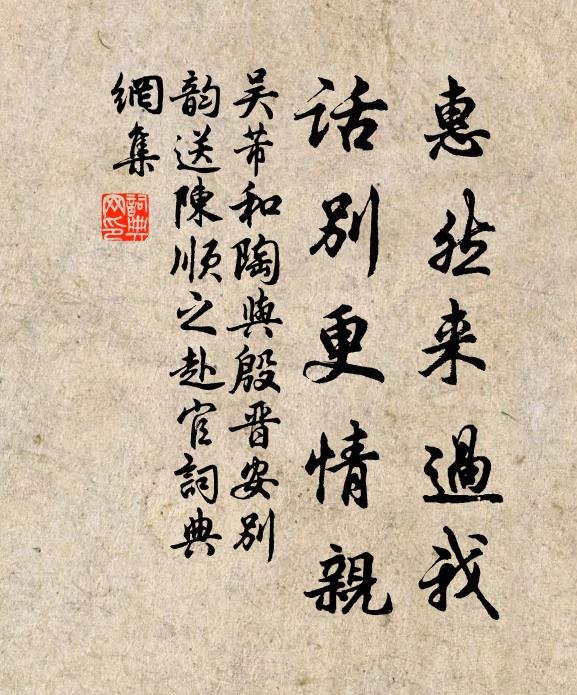 惠然来過我
话别更情親
吴芾和陶與殷晋安别
韵送陳順之赴官詞典
網集
詞典網印